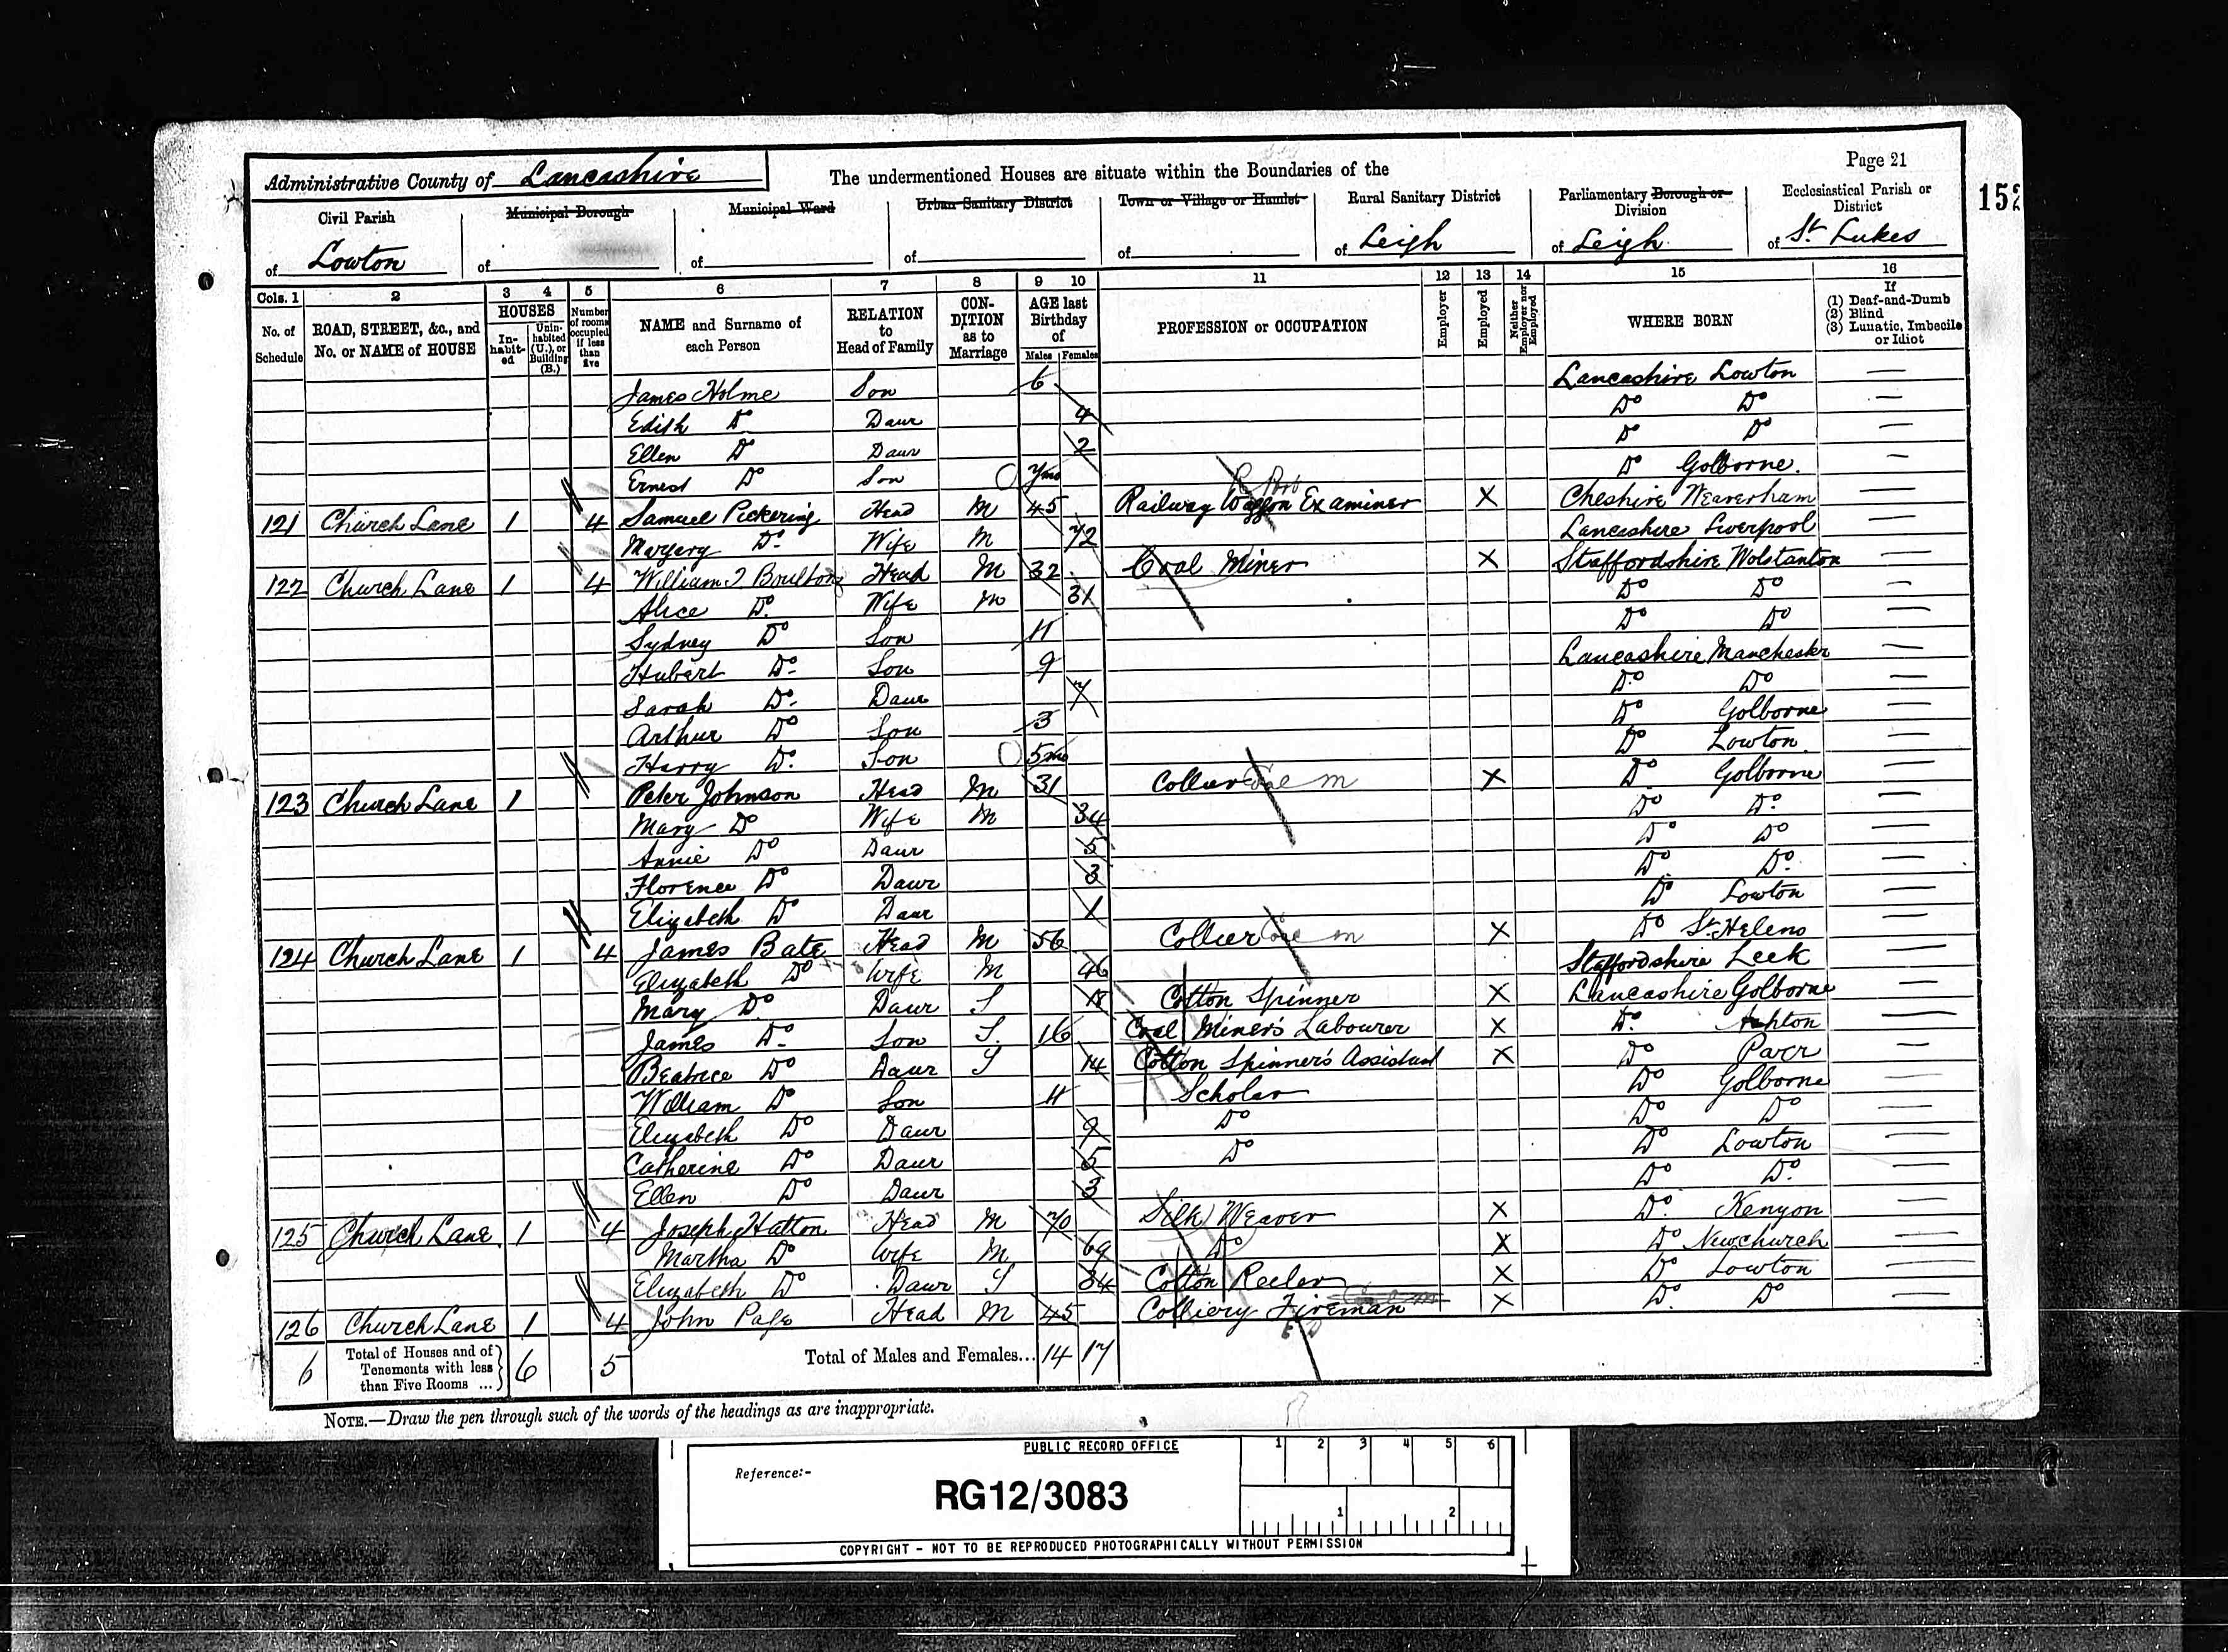 Administrative County of Lancashire
The undermentioned Houses are situate within the Boundaries of the
Page 21
152
Civil Parish
Municipal Borough
Municipal Ward
Urban Sanitary District
Town or Village or Hamlet
Rural Sanitary District
Parliamentary Borough or Division
Ecclesiastical Parish or District
of Lowton
of
of
of
of
of Leigh
of Leigh
of St. Lukes
Cols. 1 2 3 4 5 6 7 8 9 10 11 12 13 14 15 16
No. of Schedule
ROAD, STREET, &c., and No. or NAME of HOUSE
HOUSES
In-habit-ed
Unin-habited (U.), or Building (B.)
Number of rooms occupied if less than five
NAME and Surname of each Person
RELATION to Head of Family
CON-DITION as to Marriage
AGE last Birthday of
Males Females
PROFESSION or OCCUPATION
Employer
Employed
Neither Employer nor Employed
WHERE BORN
If (1) Deaf-and-Dumb (2) Blind (3) Lunatic, Imbecile or Idiot
James Holme Son 6 Lancashire Lowton —
Edith Do Daur 4 Do Do —
Ellen Do Daur 2 Do Do —
Ernest Do Son 7mo Do Golborne. —
121 Church Lane 1 4 Samuel Pickering Head M 45 Railway Waggon Examiner X Cheshire Weaverham —
Margery Do Wife M 72 Lancashire Liverpool —
122 Church Lane 1 4 William Boulton Head M 32 Coal Miner X Staffordshire Wolstanton —
Alice Do Wife M 31 Do Do —
Sydney Do Son 11 Do Do —
Hubert Do Son 9 Lancashire Manchester —
Sarah Do Daur 7 Do Do —
Arthur Do Son 3 Do Golborne —
Harry Do Son 5mo Do Lowton. —
123 Church Lane 1 Peter Johnson Head M 31 Collier X Do Golborne —
Mary Do Wife M 34 Do Do —
Annie Do Daur 5 Do Do —
Florence Do Daur 3 Do Do —
Elizabeth Do Daur 1 Do Lowton —
124 Church Lane 1 4 James Bate Head M 56 Collier X Do St. Helens —
Elizabeth Do Wife M 46 Staffordshire Leek —
Mary Do Daur S 18 Cotton Spinner X Lancashire Golborne —
James Do Son S. 16 Coal Miner's Labourer X Do Ashton —
Beatrice Do Daur S 14 Cotton Spinner's Assistant X Do Parr —
William Do Son 11 Scholar Do Golborne —
Elizabeth Do Daur 9 Do Do Do —
Catherine Do Daur 5 Do Do Lowton —
Ellen Do Daur 3 Do Do —
125 Church Lane 1 4 Joseph Hatton Head M 70 Silk Weaver X Do Kenyon —
Martha Do Wife M 69 Do X Do Newchurch —
Elizabeth Do Daur S 34 Cotton Reeler X Do Lowton —
126 Church Lane 1 4 John Page Head M 45 Colliery Fireman X Do Do —
6 Total of Houses and of Tenements with less than Five Rooms ... 6 5 Total of Males and Females... 14 17
NOTE.—Draw the pen through such of the words of the headings as are inappropriate.
PUBLIC RECORD OFFICE
1 2 3 4 5 6
Reference:-
RG12/3083
1 2
COPYRIGHT - NOT TO BE REPRODUCED PHOTOGRAPHICALLY WITHOUT PERMISSION